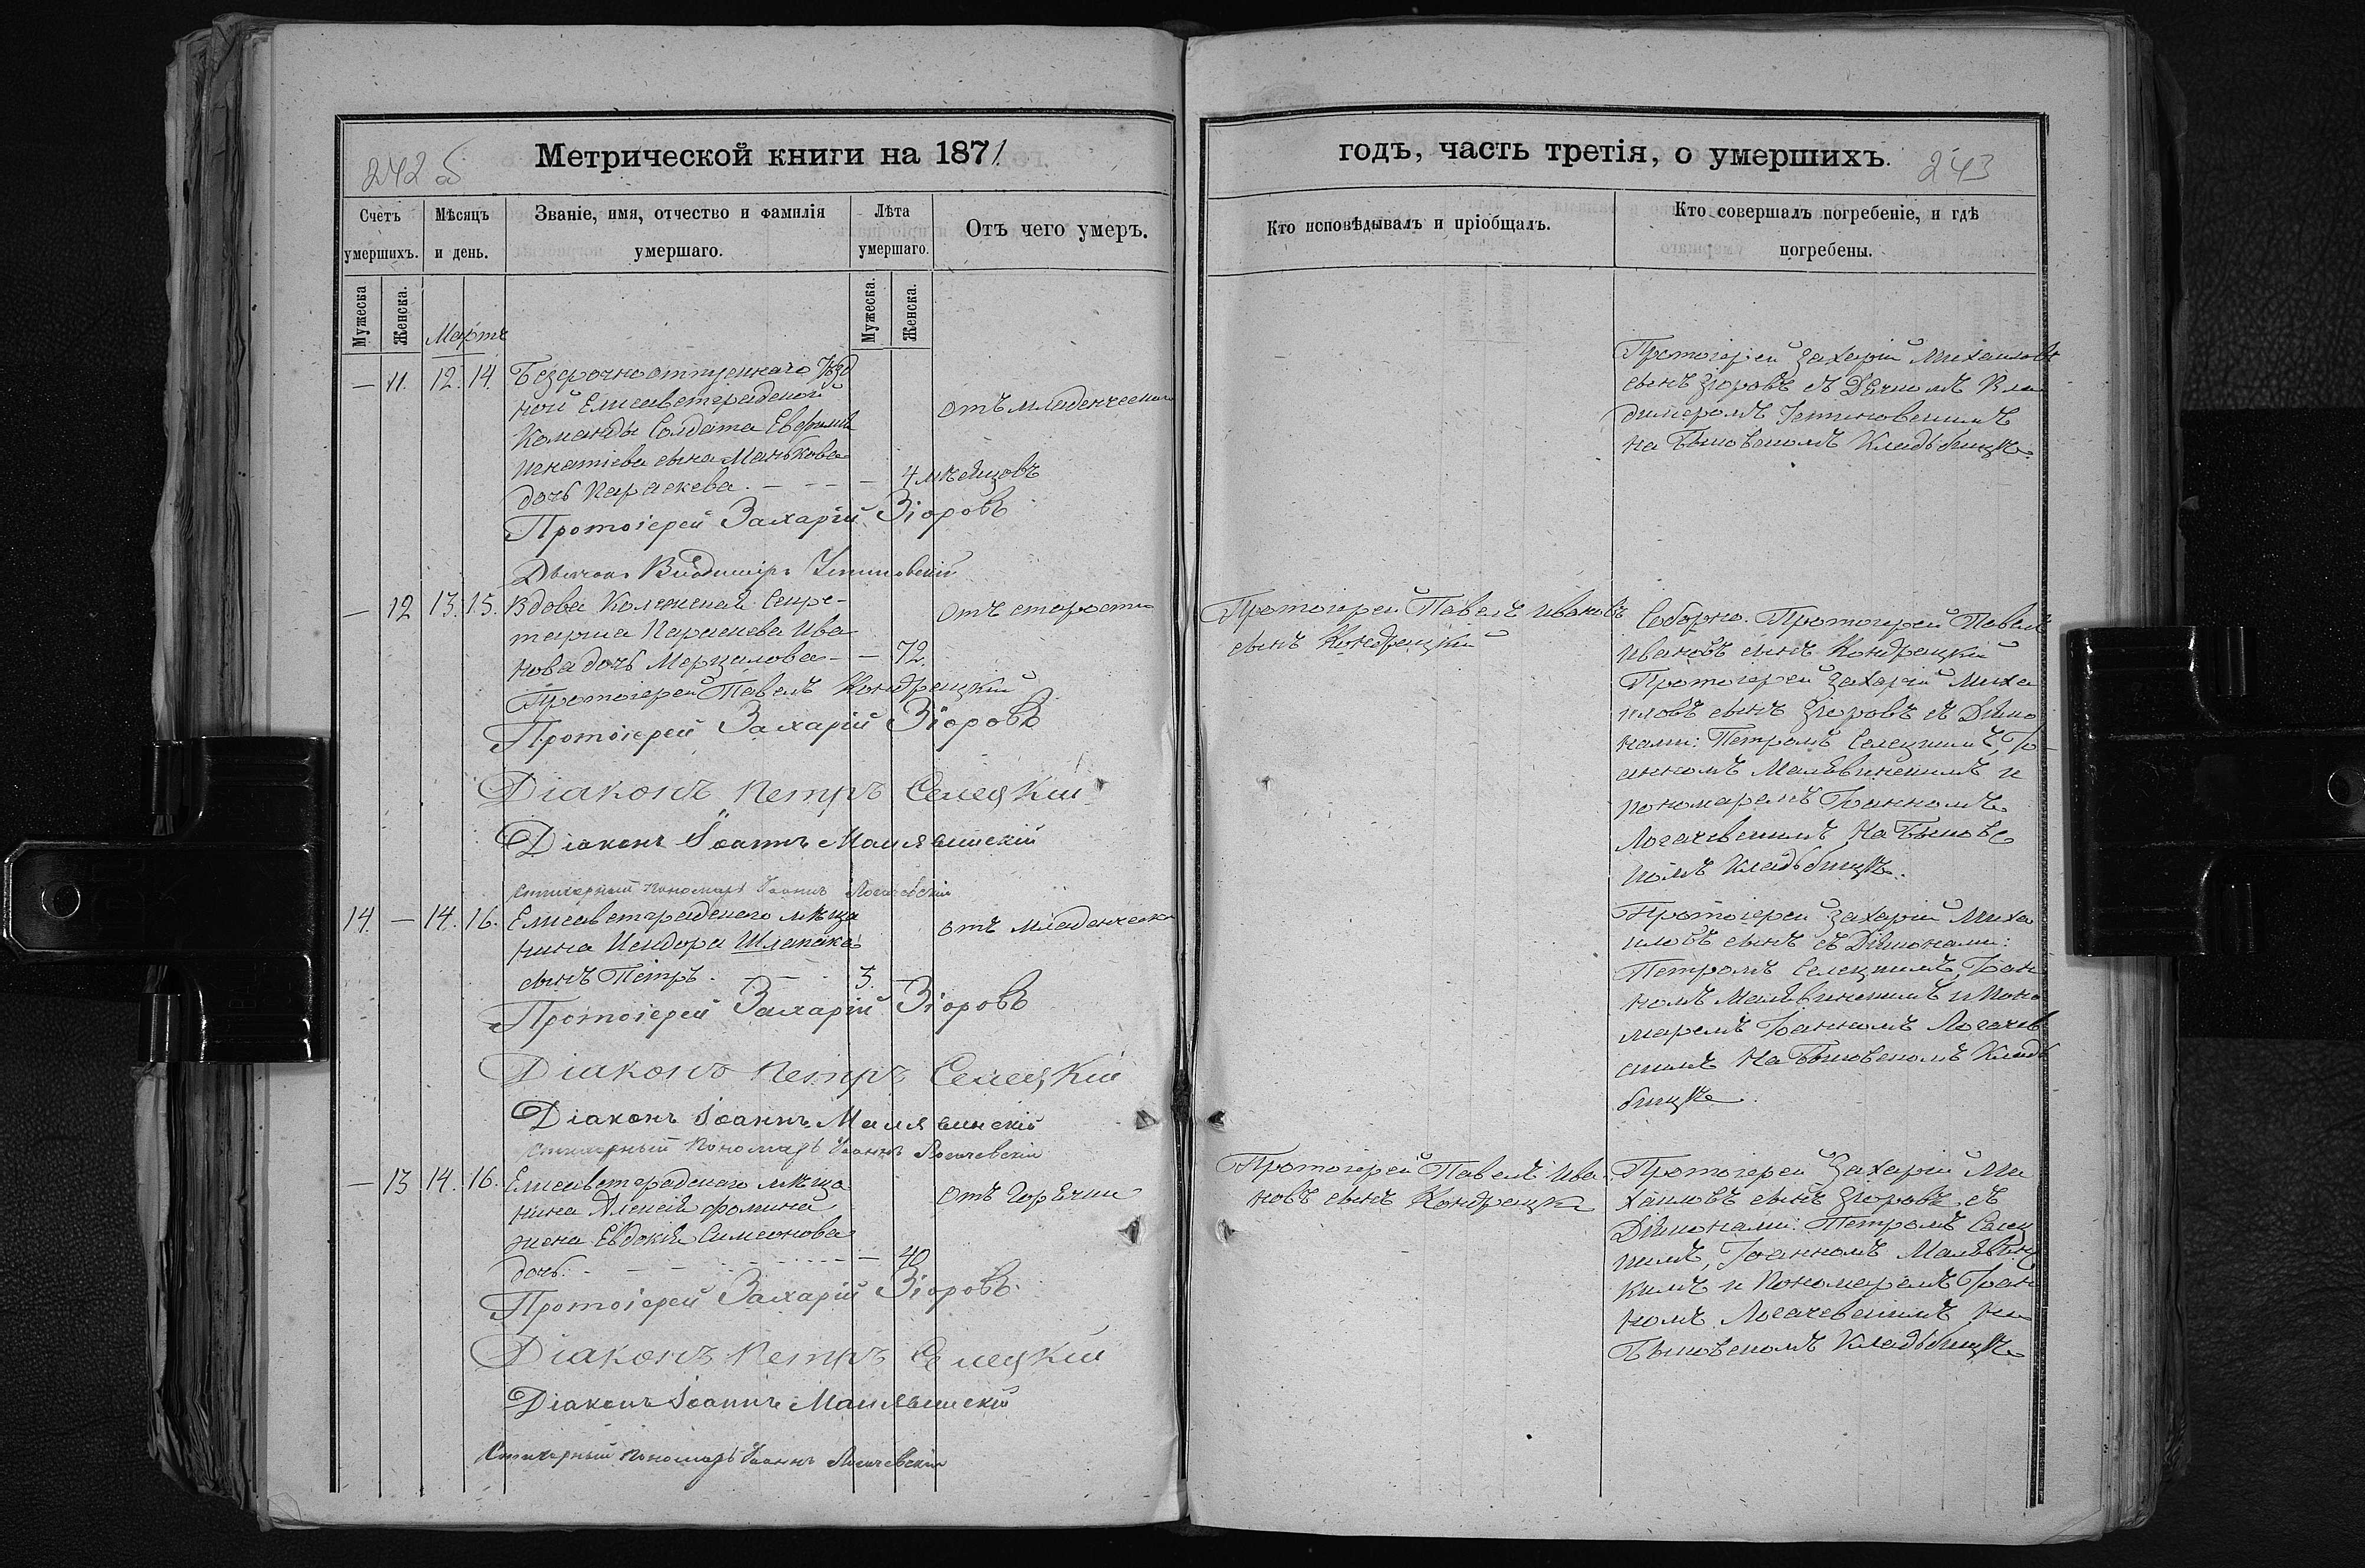 242 б
Метрической книги на 1871
Счетъ умершихъ.
Мѣсяцъ и день.
Званіе, имя, отчество и фамилія умершаго.
Лѣта умершаго.
Отъ чего умеръ.
Мужеска
Женска.
Мартъ
Мужеска.
Женска.
— 11. 12. 14. Безсрочноотпускнаго Уѣзд
ной Елисаветградской
Команды Солдата Евфимія
Игнатіева сына Манькова
дочь Параскева. — — — — 4 мѣсяцовъ
отъ младенческой
Протоіерей Захарій Зіоровъ
Дьячокъ Владиміръ
— 12 13. 15. Вдова Колежскаго Секре-
таря Параскева Ива
нова дочь Мерцалова — — 72.
отъ старости
Протоіерей Павелъ Кондрацкій
Протоіерей Захарій Зіоровъ
Діаконъ Петръ Селецкій
Діаконъ Іоаннъ Малявинскій
Стихарный пономарь Іоаннъ Логачевскій
14. — 14. 16. Елисаветградскаго мѣща
нина Исидора Шлапака
сынъ Петръ. — — 3. —
отъ младенческой
Протоіерей Захарій Зіоровъ
Діаконъ Петръ Селецкій
Діаконъ Іоаннъ Малявинскій
Стихарный Пономарь Іоаннъ Логачевскій
— 13 14. 16. Елисаветградскаго мѣща
нина Алексія Фомина
жена Евдокія Симеонова
дочь. — — — — — 40
отъ Горячки
Протоіерей Захарій Зіоровъ.
Діаконъ Петръ Селецкій
Діаконъ Іоаннъ Малявинскій
Стихарный пономарь Іоаннъ Логачевскій
годъ, часть третія, о умершихъ.
243
Кто исповѣдывалъ и пріобщалъ.
Кто совершалъ погребеніе, и гдѣ погребены.
Протоіерей Захарій Михаиловъ
сынъ Зіоровъ съ Дьячкомъ Вла
димеромъ
на Быковскомъ Кладьбищѣ.
Протоіерей Павелъ Ивановъ
сынъ Кондрацкій
Соборно. Протоіерей Павелъ
Ивановъ сынъ Кондрацкій
Протоіерей Захарій Миха
иловъ сынъ Зіоровъ съ Діако
нами: Петромъ Селецкимъ, Іо-
анномъ Малявинскимъ и
пономаремъ Іоанномъ
Логачевскимъ, На Быковс
комъ Кладьбищѣ.
Протоіерей Захарій Миха
иловъ сынъ съ Діаконами:
Петромъ Селецкимъ, Іоан
номъ Малявинскимъ и Поно
маремъ Іоанномъ Логачев
скимъ На Быковскомъ Кладь
бищѣ.
Протоіерей Павелъ Ива
новъ сынъ Кондрацкій
Протоіерей Захарій Ми
хаиловъ сынъ Зіоровъ съ
Діаконами: Петромъ Селец
кимъ, Іоанномъ Малявинс
кимъ и Пономаремъ Іоан
номъ Логачевскимъ на
Быковскомъ Кладьбищѣ